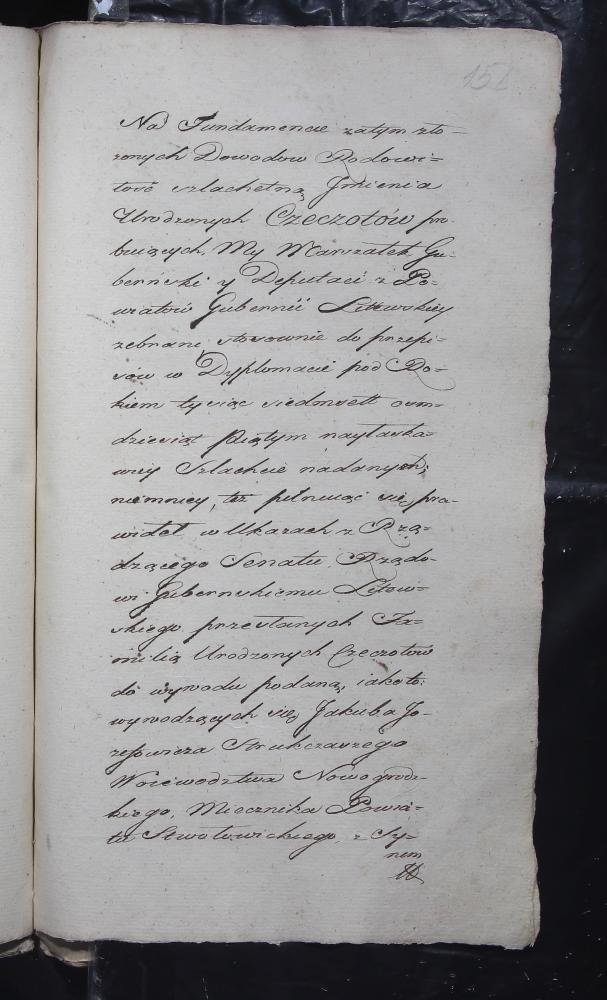 151
Na Fundamencie zatym zło-
żonych Dowodow Rodowi-
tość szlachetną Imienia
Urodzonych Czeczotów pro-
buiących, My Marszałek Gu-
berński y Deputaci z Po-
wiatów Gubernii Litewskiey
zebrani, stosownie do przepi-
sow w Dyplomacie pod Ro-
kiem tysiąc siedmset osm-
dziesiąt Piątym nayłaska-
wiey Szlachcie nadanych;
niemniey, też pilnuiąc się pra-
wideł w Ukazach z Rzą-
dzącego Senatu Rządo-
wi Gubernskiemu Litew-
skiego przesłanych Fa-
milią Urodzonych Czeczotow
do wywodu podaną, iakoto:
wywodzących się Jakuba Jo-
zefowicza Strukczaszego
Woiewodztwa Nowogrodz-
kiego, Miecznika Powia-
tu Zwołowickiego, z Sy-
nem